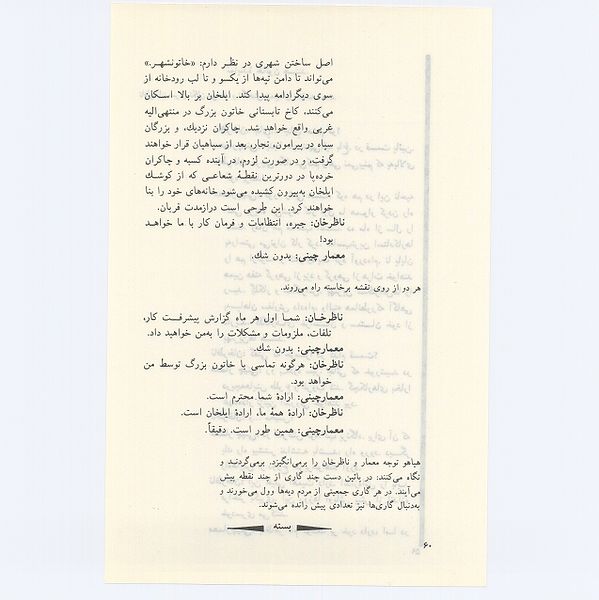 اصل ساختن شهری در نظر دارم: «خاتونشهر.»
می‌تواند تا دامن تپه‌ها از یکسو و تا لب رودخانه از
سوی دیگر ادامه پیدا کند. ایلخان بر بالا اسکان
می‌کنند، کاخ تابستانی خاتون بزرگ در منتهی‌الیه
غربی واقع خواهد شد. چاکران نزدیك، و بزرگان
سپاه در پیرامون، نجار، بعد از سپاهیان قرار خواهند
گرفت، و در صورت لزوم، در آینده کسبه و چاکران
خرده‌پا در دورترین نقطهٔ شعاعی که از کوشك
ایلخان به‌بیرون کشیده می‌شود خانه‌های خود را بنا
خواهند کرد. این طرحی است درازمدت قربان.
ناظرخان: جیره، انتظامات و فرمان کار با ما خواهد
بود!
معمار چینی: بدون شك.
هر دو از روی نقشه برخاسته راه می‌روند.
ناظرخان: شما اول هر ماه گزارش پیشرفت کار،
تلفات، ملزومات و مشکلات را به‌من خواهید داد.
معمارچینی: بدون شك.
ناظرخان: هرگونه تماسی با خاتون بزرگ توسط من
خواهد بود.
معمارچینی: ارادهٔ شما محترم است.
ناظرخان: ارادهٔ همهٔ ما، ارادهٔ ایلخان است.
معمارچینی: همین طور است. دقیقاً.
هیاهو توجه معمار و ناظرخان را برمی‌انگیزد. برمی‌گردند و
نگاه می‌کنند: در پائین دست چند گاری از چند نقطه پیش
می‌آیند. در هر گاری جمعیتی از مردم دیه‌ها وول می‌خورند و
به‌دنبال گاری‌ها نیز تعدادی پیش رانده می‌شوند.
بسته
۶۰